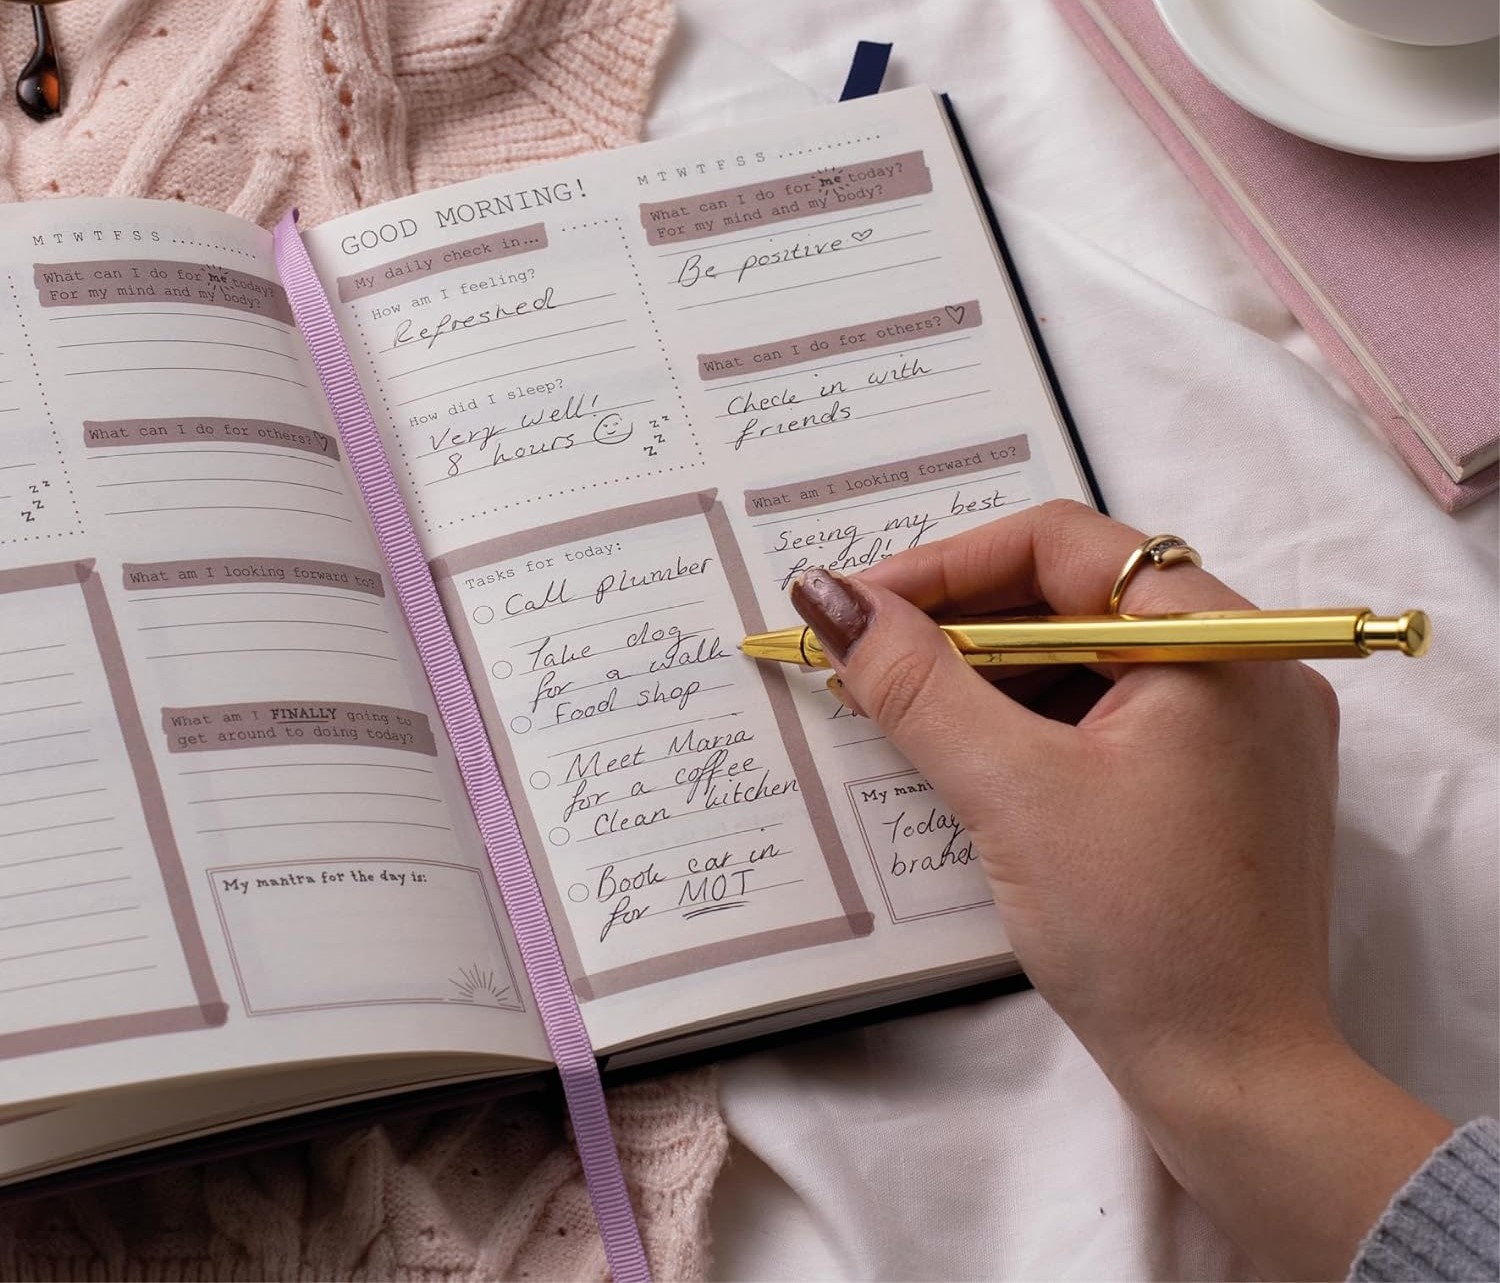 M T W T F S S
What can I do for me today?
For my mind and my body?
What can I do for others?
z z
z
z
What am I looking forward to?
What am I FINALLY going to
get around to doing today?
My mantra for the day is:
GOOD MORNING!
My daily check in...
How am I feeling?
Refreshed
How did I sleep?
Very well!
8 hours
z z
z
z
Tasks for today:
Call plumber
Take dog
for a walk
Food shop
Meet Maria
for a coffee
Clean kitchen
Book car in
for MOT
M T W T F S S
What can I do for me today?
For my mind and my body?
Be positive
What can I do for others?
Check in with
friends
What am I looking forward to?
Seeing my best
friend!
My
Today